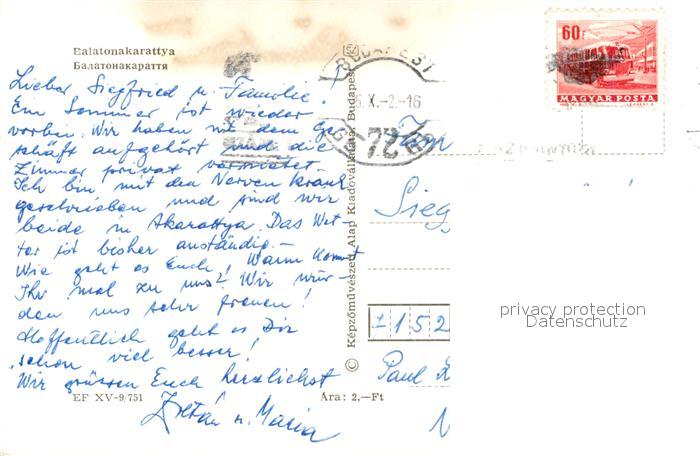 Balatonakarattya
Балатонакараття
Lieber Siegfried u. Familie!
Ein Sommer ist wieder
vorbei. Wir haben mit dem Ge-
schäft aufgehört und die
Zimmer privat vermietet.
Ich bin mit den Nerven krank
geschrieben und sind wir
beide in Akarattya. Das Wet-
ter ist bisher anständig. –
Wie geht es Euch? Wann kommt
Ihr mal zu uns? Wir wür-
den uns sehr freuen!
Hoffentlich geht es Dir
schon viel besser!
Wir grüssen Euch herzlichst
Zoltán u. Maria
EF XV-9/751
Ára: 2,—Ft
© Képzőművészeti Alap Kiadóvállalata, Budapest
BUDAPEST
X.-2.-16
72
60f
MAGYAR POSTA
Sieg
1152
Paul
privacy protection
Datenschutz